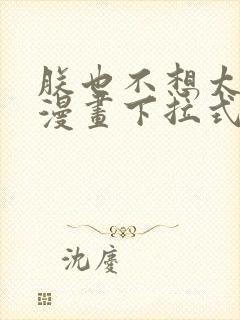 朕也不想太
漫畫下拉式
沈慶